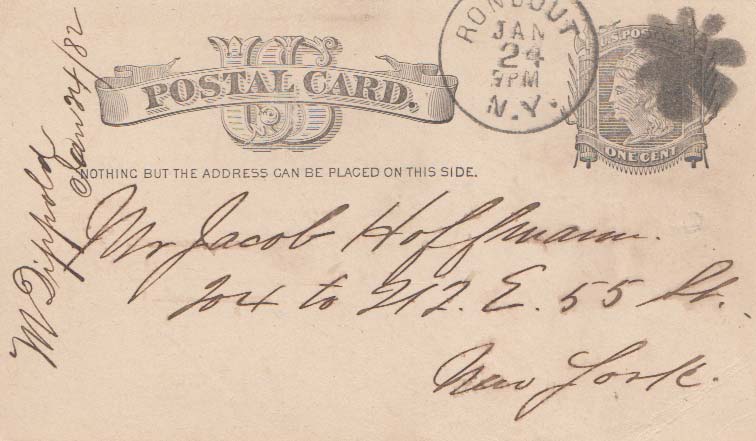 US
POSTAL CARD.
RONDOUT
JAN
24
9PM
N.Y.
U.S. POSTAGE
ONE CENT
NOTHING BUT THE ADDRESS CAN BE PLACED ON THIS SIDE.
Mr Jacob Hoffmann.
204 to 212. E. 55 St.,
New York.
M Dippold
Jan 24/82